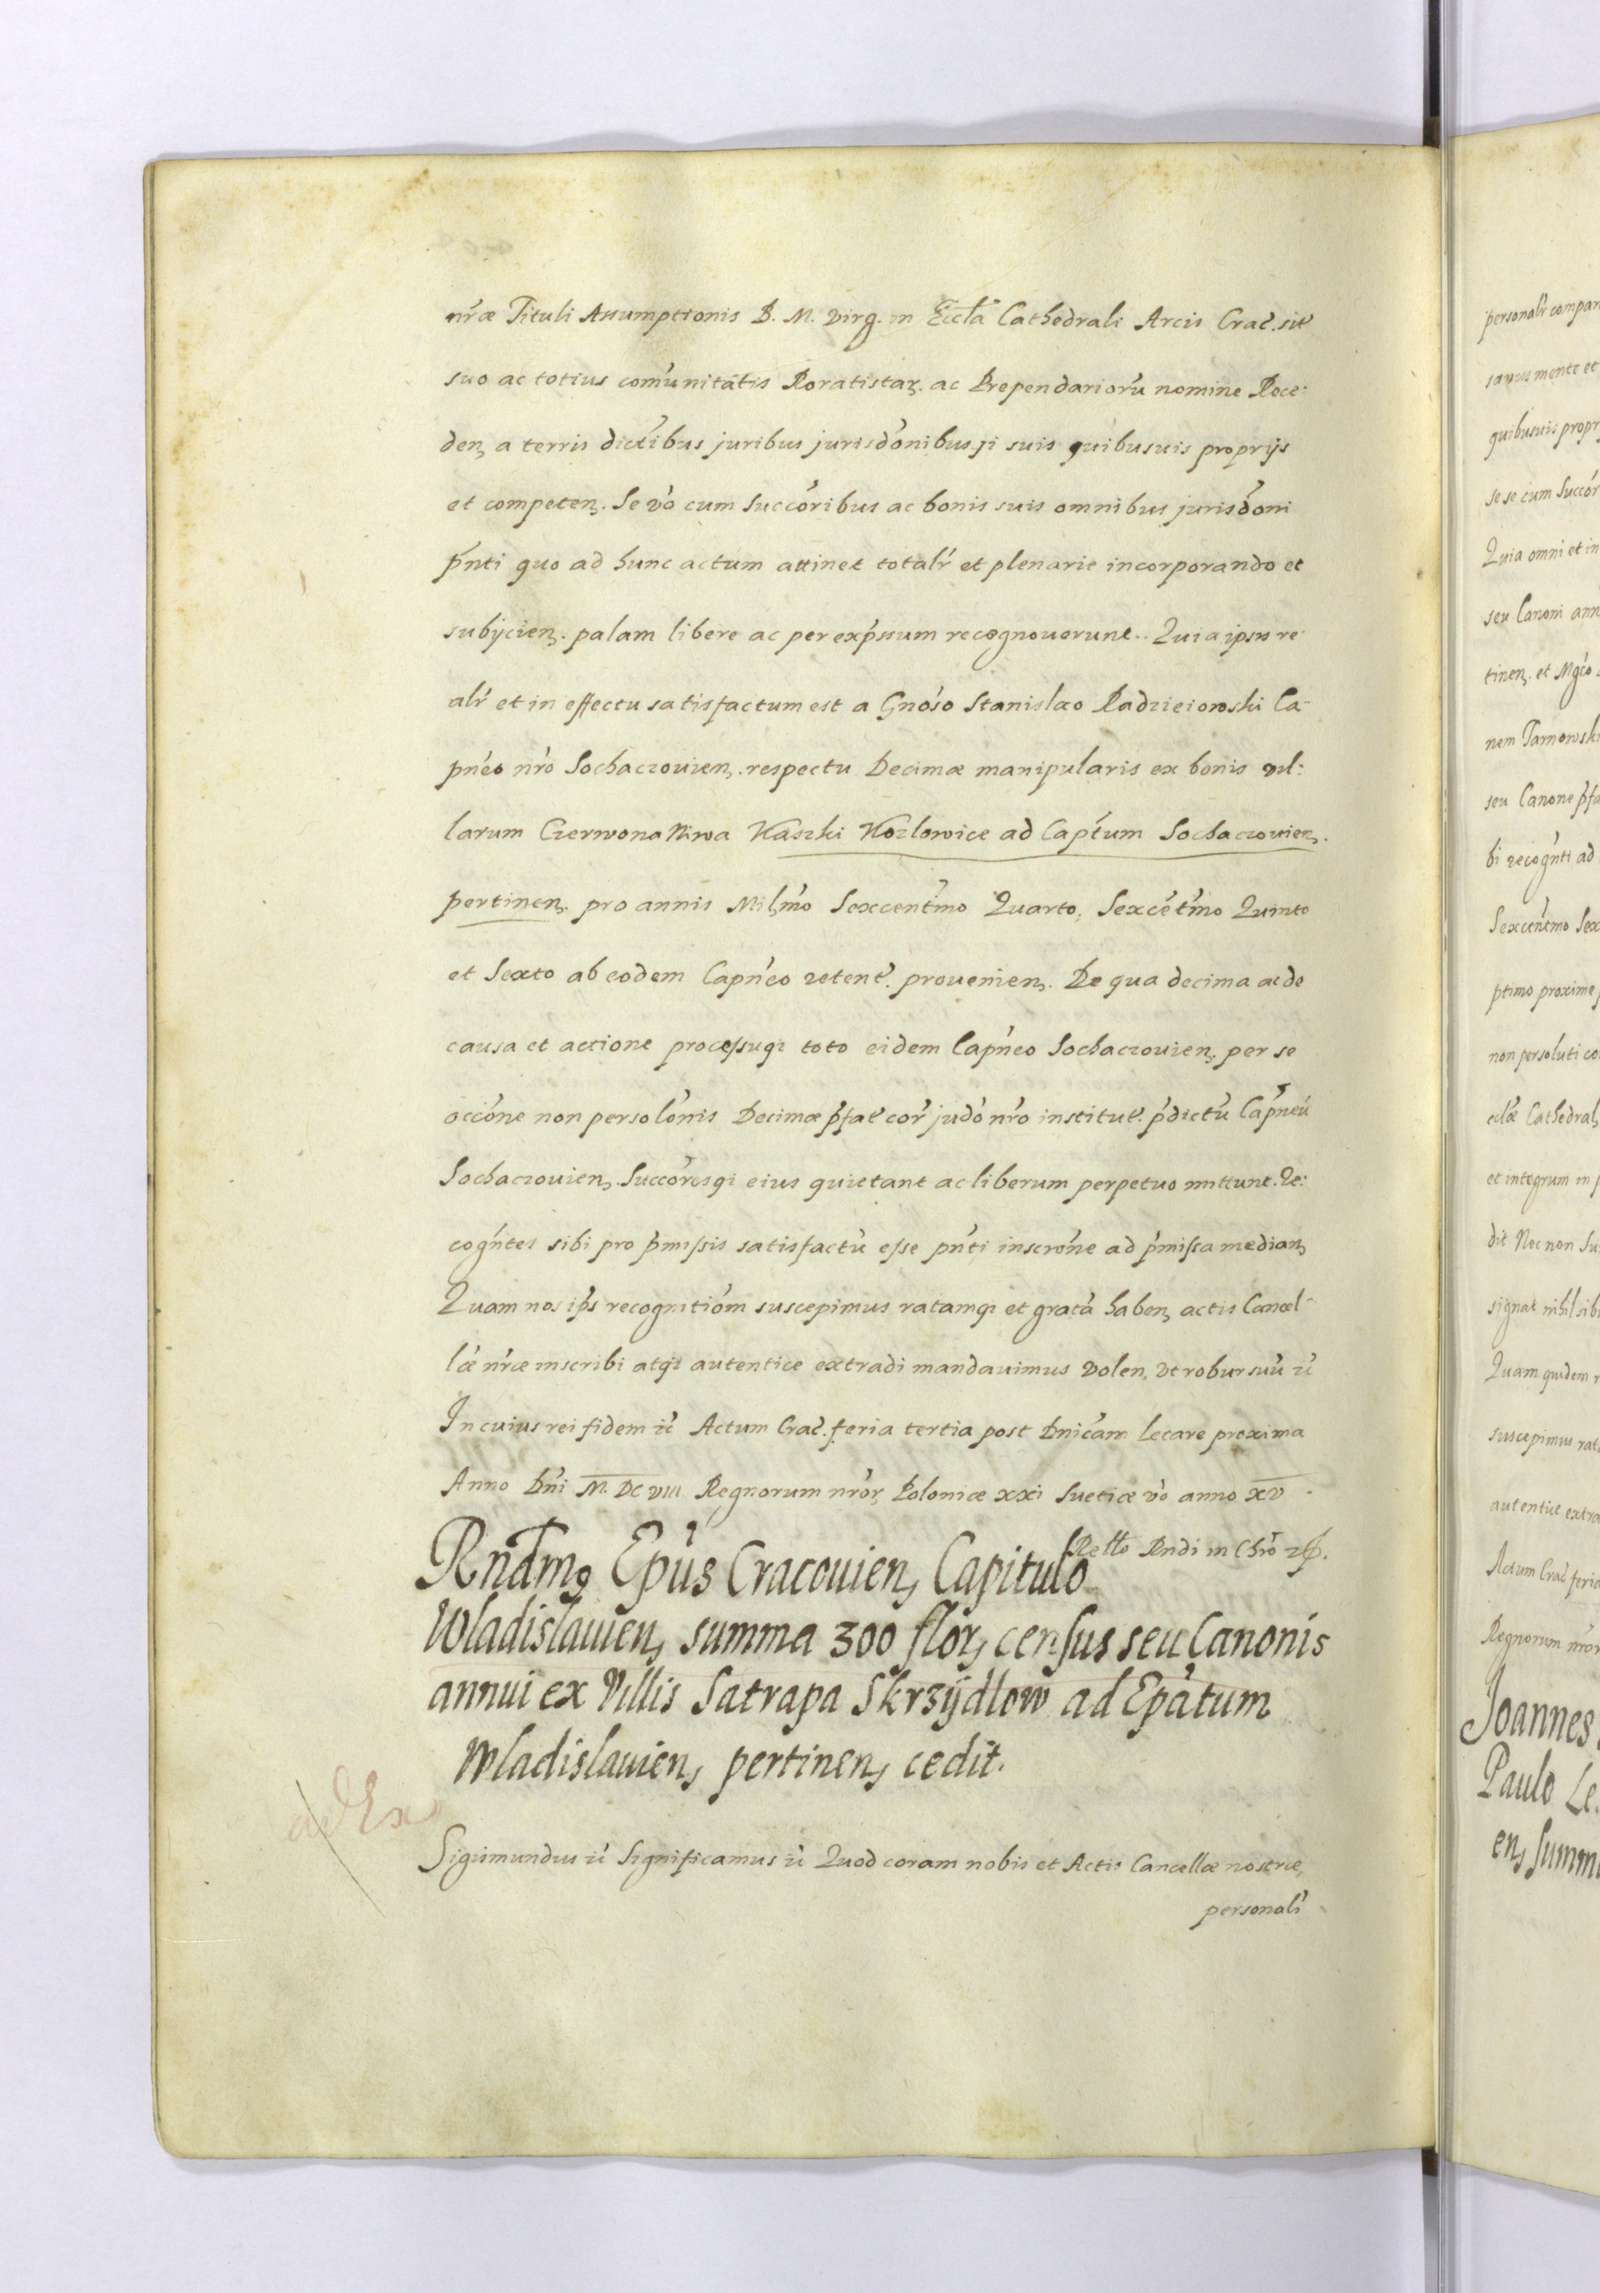 nr̃æ Tituli Assumptionis B. M. Virg. in Eccla Cathedrali Arcis Crac̃. sit̃
suo ac totius com̃unitatis Roratistaꝝ. ac Prependariorũ nomine Rece:
denꝫ a terris dictĩbus juribus jurisdõnibusqꝫ suis quibusuis proprijs
et competenꝫ. Se võ cum Succõribus ac bonis suis omnibus jurisdõni
p̃nti quo ad hunc actum attinet totalr̃ et plenarie incorporando et
subijcienꝫ. palam libere ac per exp̃ssum recognouerunt. Quia ipsis re
alr̃ et in effectu satisfactum est a Gnõso Stanislao Radzieiowski Ca-
pñeo nr̃o Sochaczouienꝫ. respectu Decimæ manipularis ex bonis vil:
larum Czerwona Niwa Kaszki Kozlowice ad Cap̃tum Sochaczouienꝫ.
pertinenꝫ. pro annis Milꝉmo Sexcentm̃o Quarto, Sexcẽtm̃o Quinto
et Sexto ab eodem Capñeo retent̃. prouenienꝫ. De qua decima ac de
causa et actione processuqꝫ toto eidem Capñeo Sochaczouienꝫ. per se
occõne non persolõnis Decimæ p̃fat̃ cor̃ judõ nr̃o institut̃. p̃dictũ Cap̃neũ
Sochaczouienꝫ. Succõresqꝫ eius quietant ac liberum perpetuo mittunt. Re:
cogñtes sibi pro p̃missis satisfactũ esse pñti inscrõne ad p̃missa medianꝫ
Quam nos ip̃s recognitiõm suscepimus ratamqꝫ et gratã habenꝫ actis Cancel-
læ nr̃æ inscribi atqꝫ autentice extradi mandauimus volen. vt robur suũ ꝛc̃
In cuius rei fidem ꝛc̃ Actum Crac̃. feria tertia post Dnic̃am Letare proxima
Anno Dñi M. DC VIII Regnorum nr̃oꝝ Poloniæ XXI Suetiæ võ anno XV.
Rell̃o Rñdi in Chr̃o ꝛp̃.
Rndm̃9 Ep̃us Cracouienꝫ Capitulo
Wladislauienꝫ summa 300 florꝫ census seu Canonis
annui ex Villis Satrapa Skrzÿdlow ad Ep̃atum
Wladislauienꝫ pertinenꝫ cedit.
ad Ex
Sigismundus ꝛc̃ Significamus ꝛc̃ Quod coram nobis et Actis Cancellæ nostræ,
personalr̃
personalr̃ compar
sanus mente et
quibusuis propr
se se cum Succõr
Quia omni et in
seu Canoni ann
tinenꝫ. et Mgc̃o
nem Tarnowski
seu Canone p̃fa
bi recogñti ad
Sexcentm̃o Sex
ptimo proxime
non persoluti co
eclæ̃ Cathedral
et integrum in
dit Nec non Su
signat nihil sibi
Quam quidem r
suscepimus rat
autentice extra
Actum Crac̃ feria
Regnorum nr̃or
Joannes
Paulo Le.
enꝫ summ